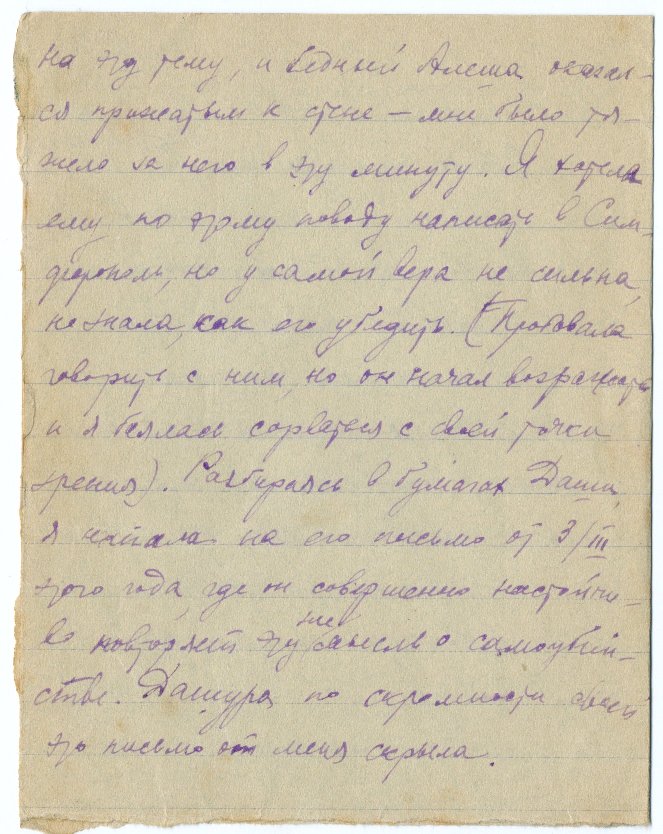 на эту тему, и бедный Алеша оказал-
ся прижатым к стене – мне было тя-
жело за него в эту минуту. Я хотела
ему по этому поводу написать в Сим-
ферополь, но у самой вера не сильна,
не знала, как его убедить. (Пробовала
говорить с ним, но он начал возражать
и я боялась сорваться с своей точки
зрения). Разбираясь в бумагах Даши,
я напала на его письмо от 3/III
этого года, где он совершенно настойчи-
во повторяет эту же мысль о самоубий-
стве. Дашура по скромности своей
это письмо от меня скрыла.